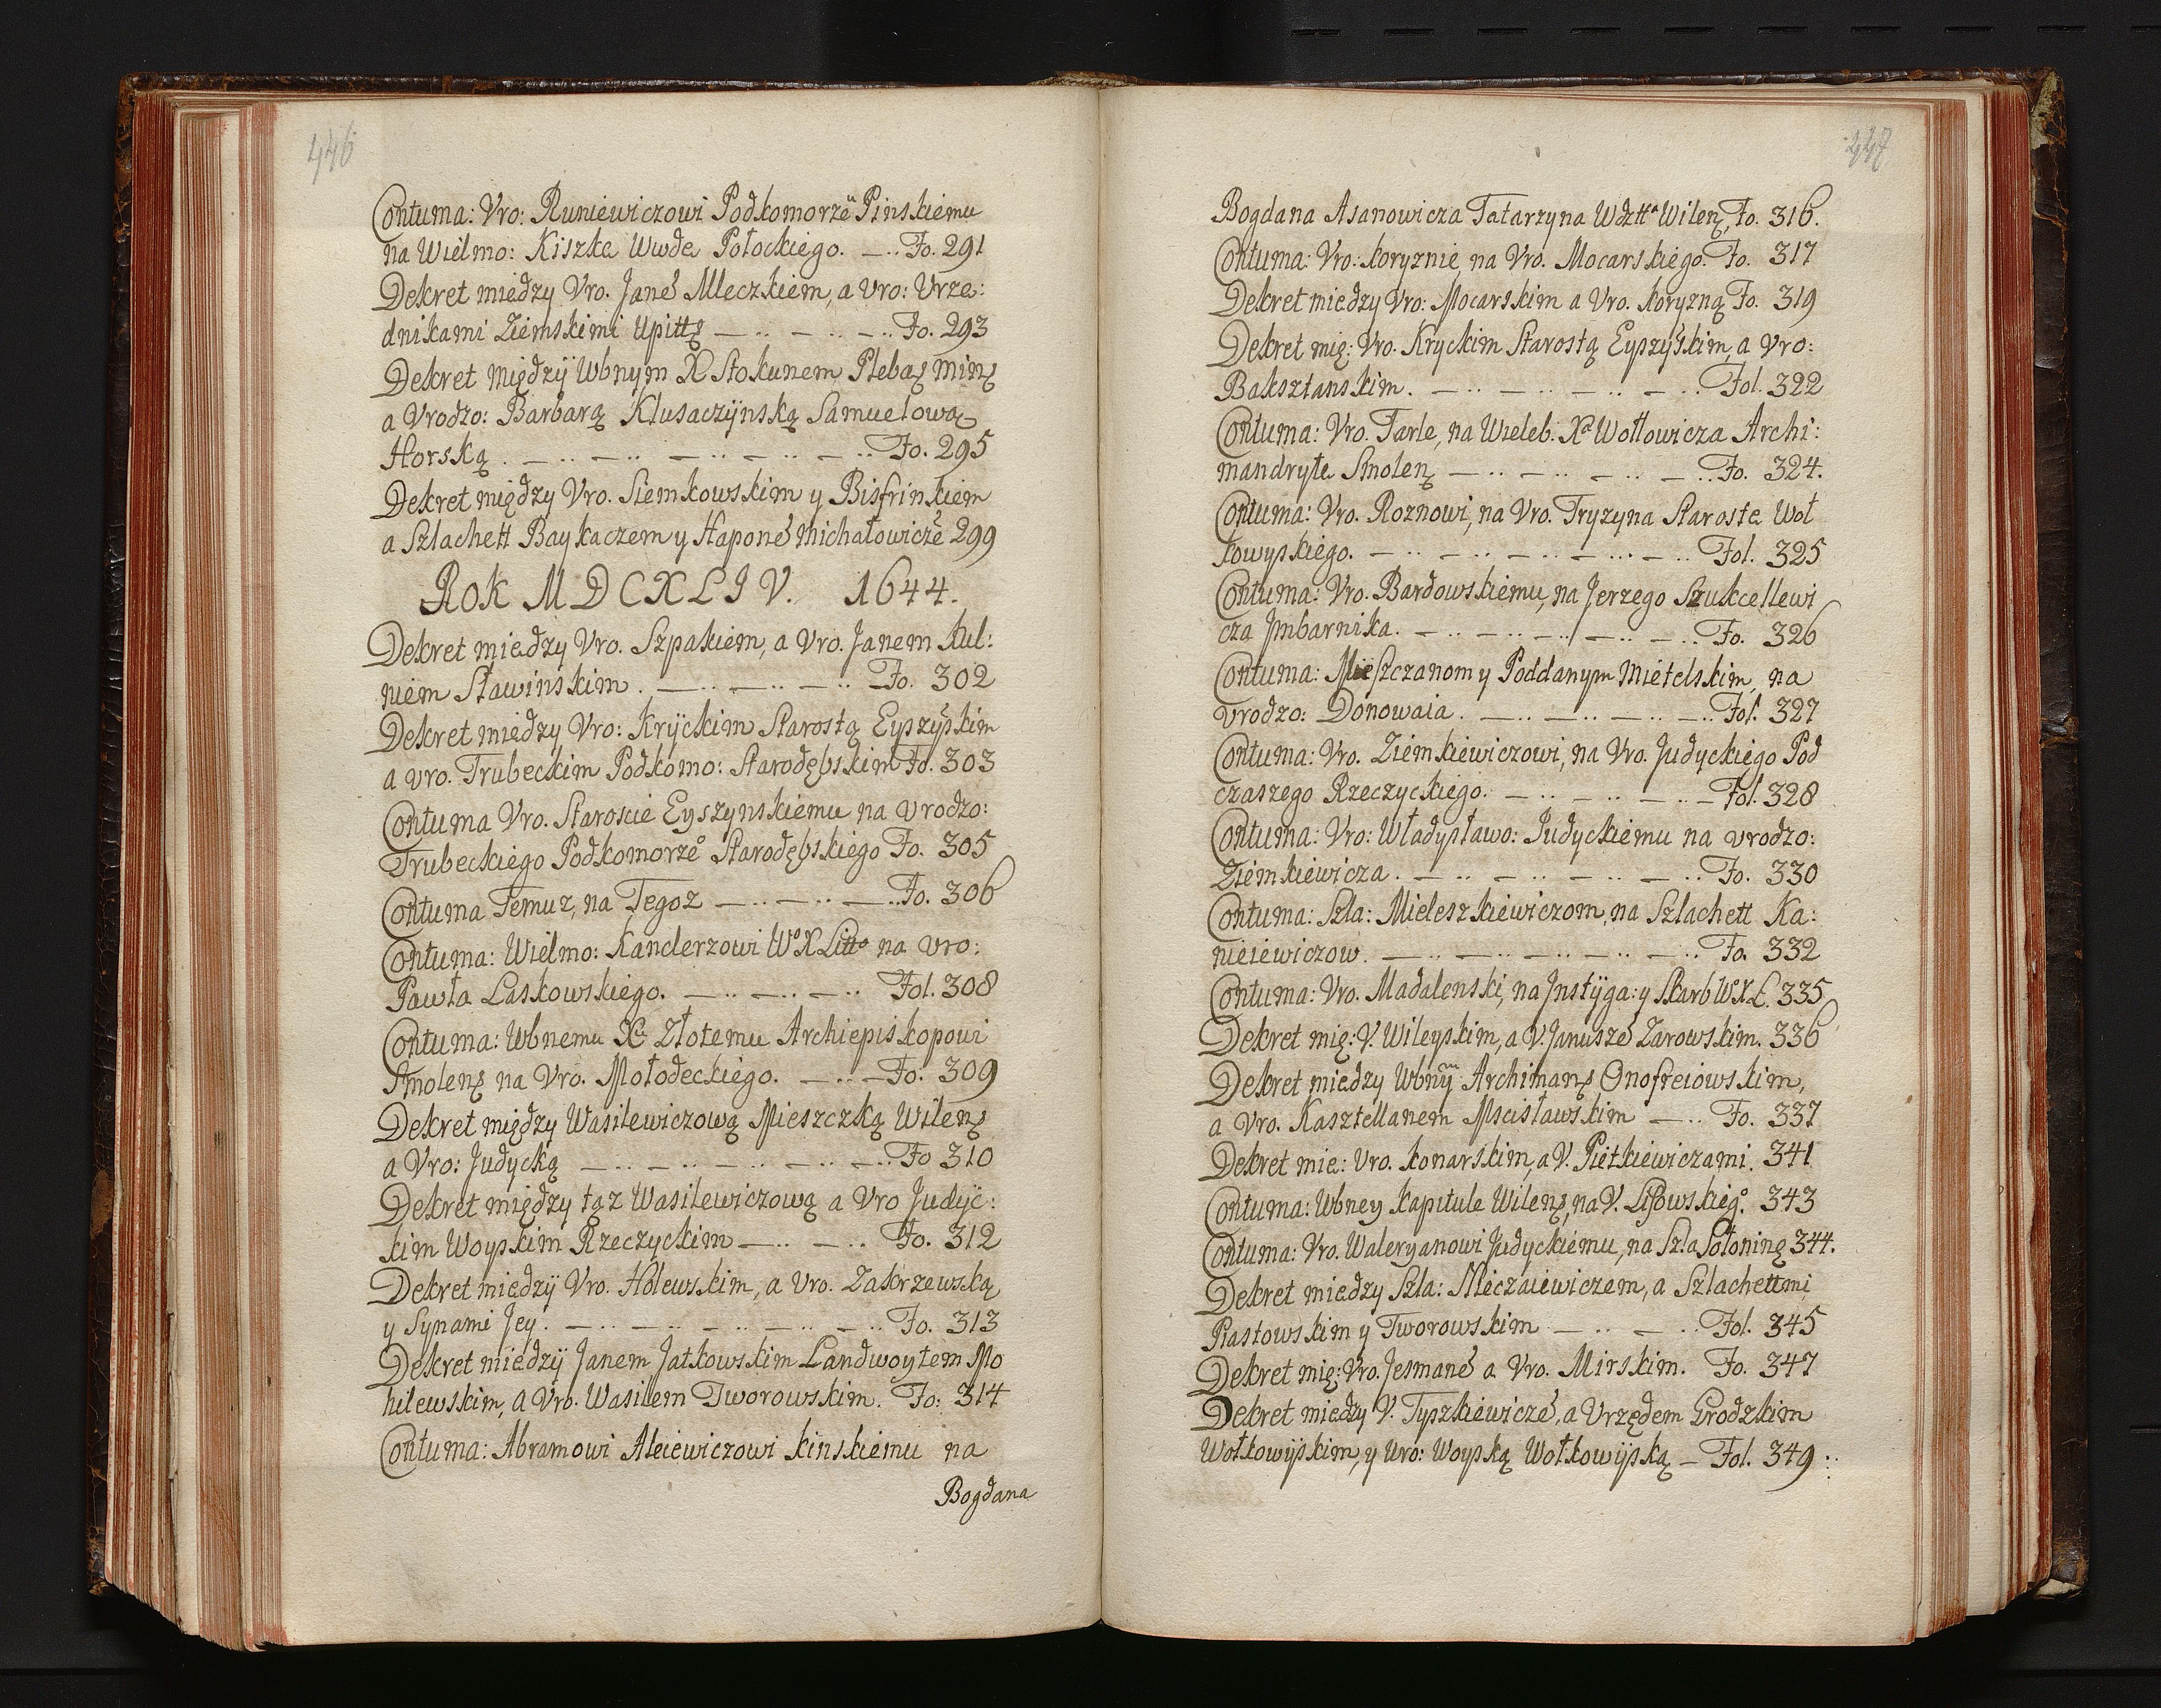 446
Contuma: Vro: Runiewiczowi Podkomorzeͧ Pinskiemu
na Wielmo: Kiszka Wwde Połockiego. — .. Fo. 291
Dekret miedzy Vro. Jane͂ Mleczkiem, a Vro: Vrze:
dnikami Ziemskimi Upittę — .. — .. — .. Fo. 293
Dekret międzÿ Wbnym X Stokunem Plebaę minę
a Vrodzo: Barbarą Klusaczÿnską Samuelową
Horską . — .. — .. — .. — .. — .. Fo. 295
Dekret między Vro. Siemkowskim y Bisfrinkiem
a Szlachett Baykaczem y Hapone͂ Michałowicze͂ 299
Rok MDCXLIV. 1644.
Dekret miedzy Vro. Szpakiem, a Vro. Janem Kul:
niem Sławinskim . — .. — .. — .. Fo. 302
Dekret miedzy Vro: Krÿckim Starostą Eyszyskim
a vro. Trubeckim Podkomo: Starodębskim Fo. 303
Contuma Vro. Staroscie Eyszynskiemu na Vrodzo:
Trubeckiego Podkomorze° Starodębskiego Fo. 305
Contuma Temuz, na Tegoz — .. — .. — .. Fo. 306
Contuma: Wielmo: Kanclerzowi W° X Litto na vro:
Pawła Laskowskiego. — .. — .. — .. Fol. 308
Contuma: Wbnemu Xu Złotemu Archiepiskopowi
Smolenę na Vro. Mołodeckiego. — .. — Fo. 309
Dekret między Wasilewiczową Mieszczką Wilenę
a Vro: Judycką — .. — .. — .. — .. — .. Fo 310
Dekret między tąz Wasilewiczową a Vro Judÿc:
kim Woyskim Rzeczyckim — .. — .. Fo. 312
Dekret miedzÿ Vro. Holewskim, a Vro. Zakrzewską
y Synami Jey. — .. — .. — .. — .. — .. Fo. 313
Dekret miedzÿ Janem Jatkowskim Landwoytem Mo
hilewskim, a Vro. Wasilem Tworowskim. Fo: 314
Contuma: Abramowi Aleiewiczowi kinskiemu na
Bogdana
447
Bogdana Asanowicza Tatarzyna Wdztta Wilenę, Fo. 316.
Contuma: Vro: koryznie, na Vro. Mocarskiego. Fo. 317
Dekret miedzy Vro: Mocarskim a Vro. koryzną Fo. 319
Dekret mię: Vro. Kryckim Starostą Eyszyskim, a Vro:
Baksztanskim. — .. — .. — .. — .. Fol. 322
Contuma: Vro. Tarle, na Wieleb: Xa Wołłowicza Archi:
mandryte Smolenę — .. — .. — .. — .. Fo. 324.
Contuma: Vro. Roznowi, na Vro. Tryzyna Staroste Woł
kowyskiego. — .. — .. — .. — ... — .. Fol. 325
Contuma: Vro. Bardowskiemu, na Jerzego Szukcellewi
cza Jmbarnika. — .. — .. — .. — .. — .. Fo. 326
Contuma: Mieszczanom y Poddanym Mietelskim, na
vrodzo: Donowaia . — .. — .. — .. — .. Fol. 327
Contuma: Vro. Ziemkiewiczowi, na Vro. Judyckiego Pod
czaszego Rzeczyckiego. — .. — .. — .. — Fol. 328
Contuma: Vro: Władysławo: Judyckiemu na vrodzo:
Ziemkiewicza . — .. — .. — .. — .. Fo. 330
Contuma: Szla: Mieleszkiewiczom, na Szlachett Ka:
nieiewiczow. — .. — .. — .. — .. — .. Fo. 332
Contuma: Vro. Madalenski, na Jnstÿga: y Skarb W° X L. 335
Dekret mię: V. Wileyskim, a V. Janusze͂ Zarowskim. 336
Dekret miedzy Wbnÿm Archimanę Onofreiowskim,
a Vro. Kasztellanem Mscisławskim — .. Fo. 337
Dekret mie: vro. konarskim, a V. Pietkiewiczami. 341
Contuma: Wbney kapitule Wilenę, na V. Lisowskieg° 343
Contuma: Vro. Waleryanowi Judyckiemu, na Szla Sołoninę 344.
Dekret miedzy Szla: Mieczaiewiczem, a Szlachettmi
Piastowskim y Tworowskim — .. — .. Fol. 345
Dekret mię: Vro. Jesmane͂ a Vro. Mirskim. Fo. 347
Dekret miedzy V. Tyszkiewicze͂, a Vrzędem Grodzkim
Wołkowÿskim, y vro: Woyską Wołkowÿską — Fol. 349